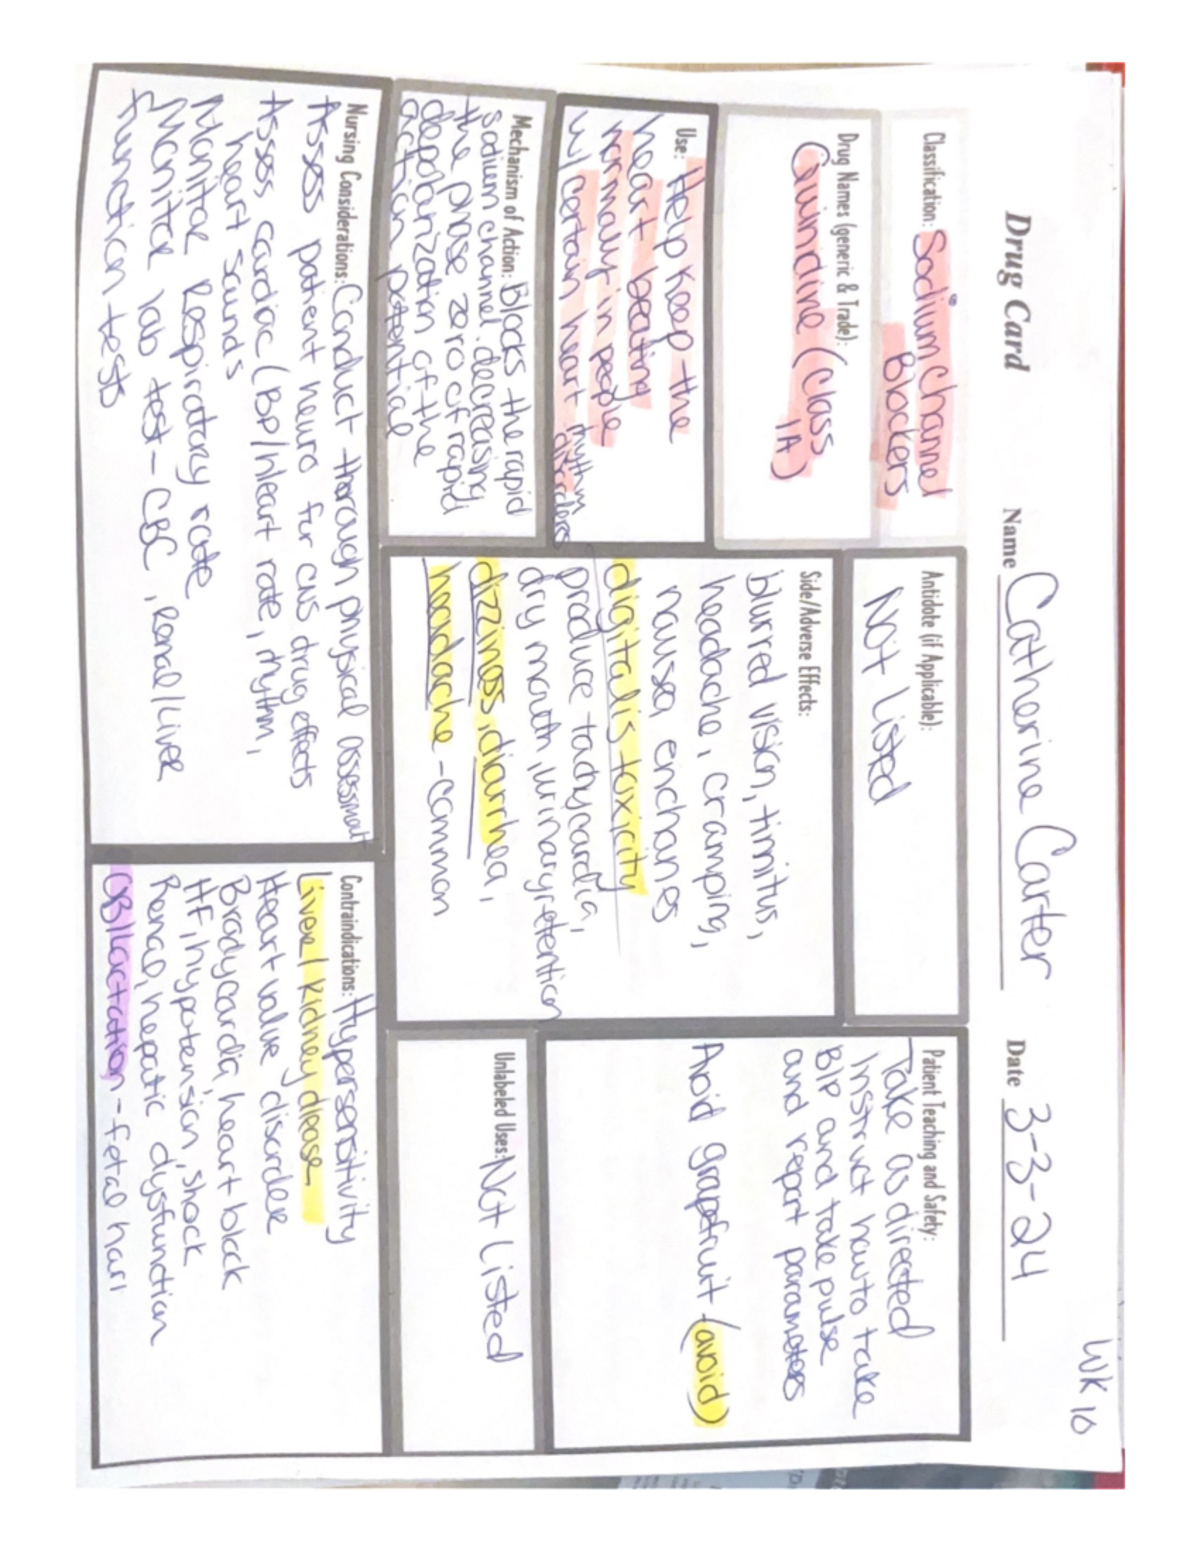 Wk 10
Drug Card Name Catherine Carter Date 3-3-24
Classification: Sodium Channel
Blockers
Drug Names (generic & Trade):
Quinidine (Class
1A)
Use: Help keep the
heart beating
normally in people
w/ certain heart rhythm
disorders
Mechanism of Action: Blocks the rapid
sodium channel, decreasing
the phase zero of rapid
depolarization of the
action potential
Nursing Considerations: Conduct thorough physical assessment
Asses patient neuro for cns drug effects
Assess cardiac (BP/heart rate, rhythm,
heart sounds
Monitor Respiratory rate
Monitor lab test - CBC, Renal/Liver
function tests
Antidote (if Applicable):
Not Listed
Side/Adverse Effects:
blurred vision, tinnitus,
headache, cramping,
nausea, enchanes
digitalis toxicity
produce tachycardia,
dry mouth, urinary retention
dizziness, diarrhea,
headache - common
Patient Teaching and Safety:
Take as directed
Instruct how to take
B/P and take pulse
and report parameters
Avoid grapefruit (avoid)
Unlabeled Uses: Not Listed
Contraindications: Hypersensitivity
Liver/kidney diease
Heart value disorder
Bradycardia, heart block
HF, hypotension, shock
Renal, hepatic dysfunction
OB/Lactation - fetal harm